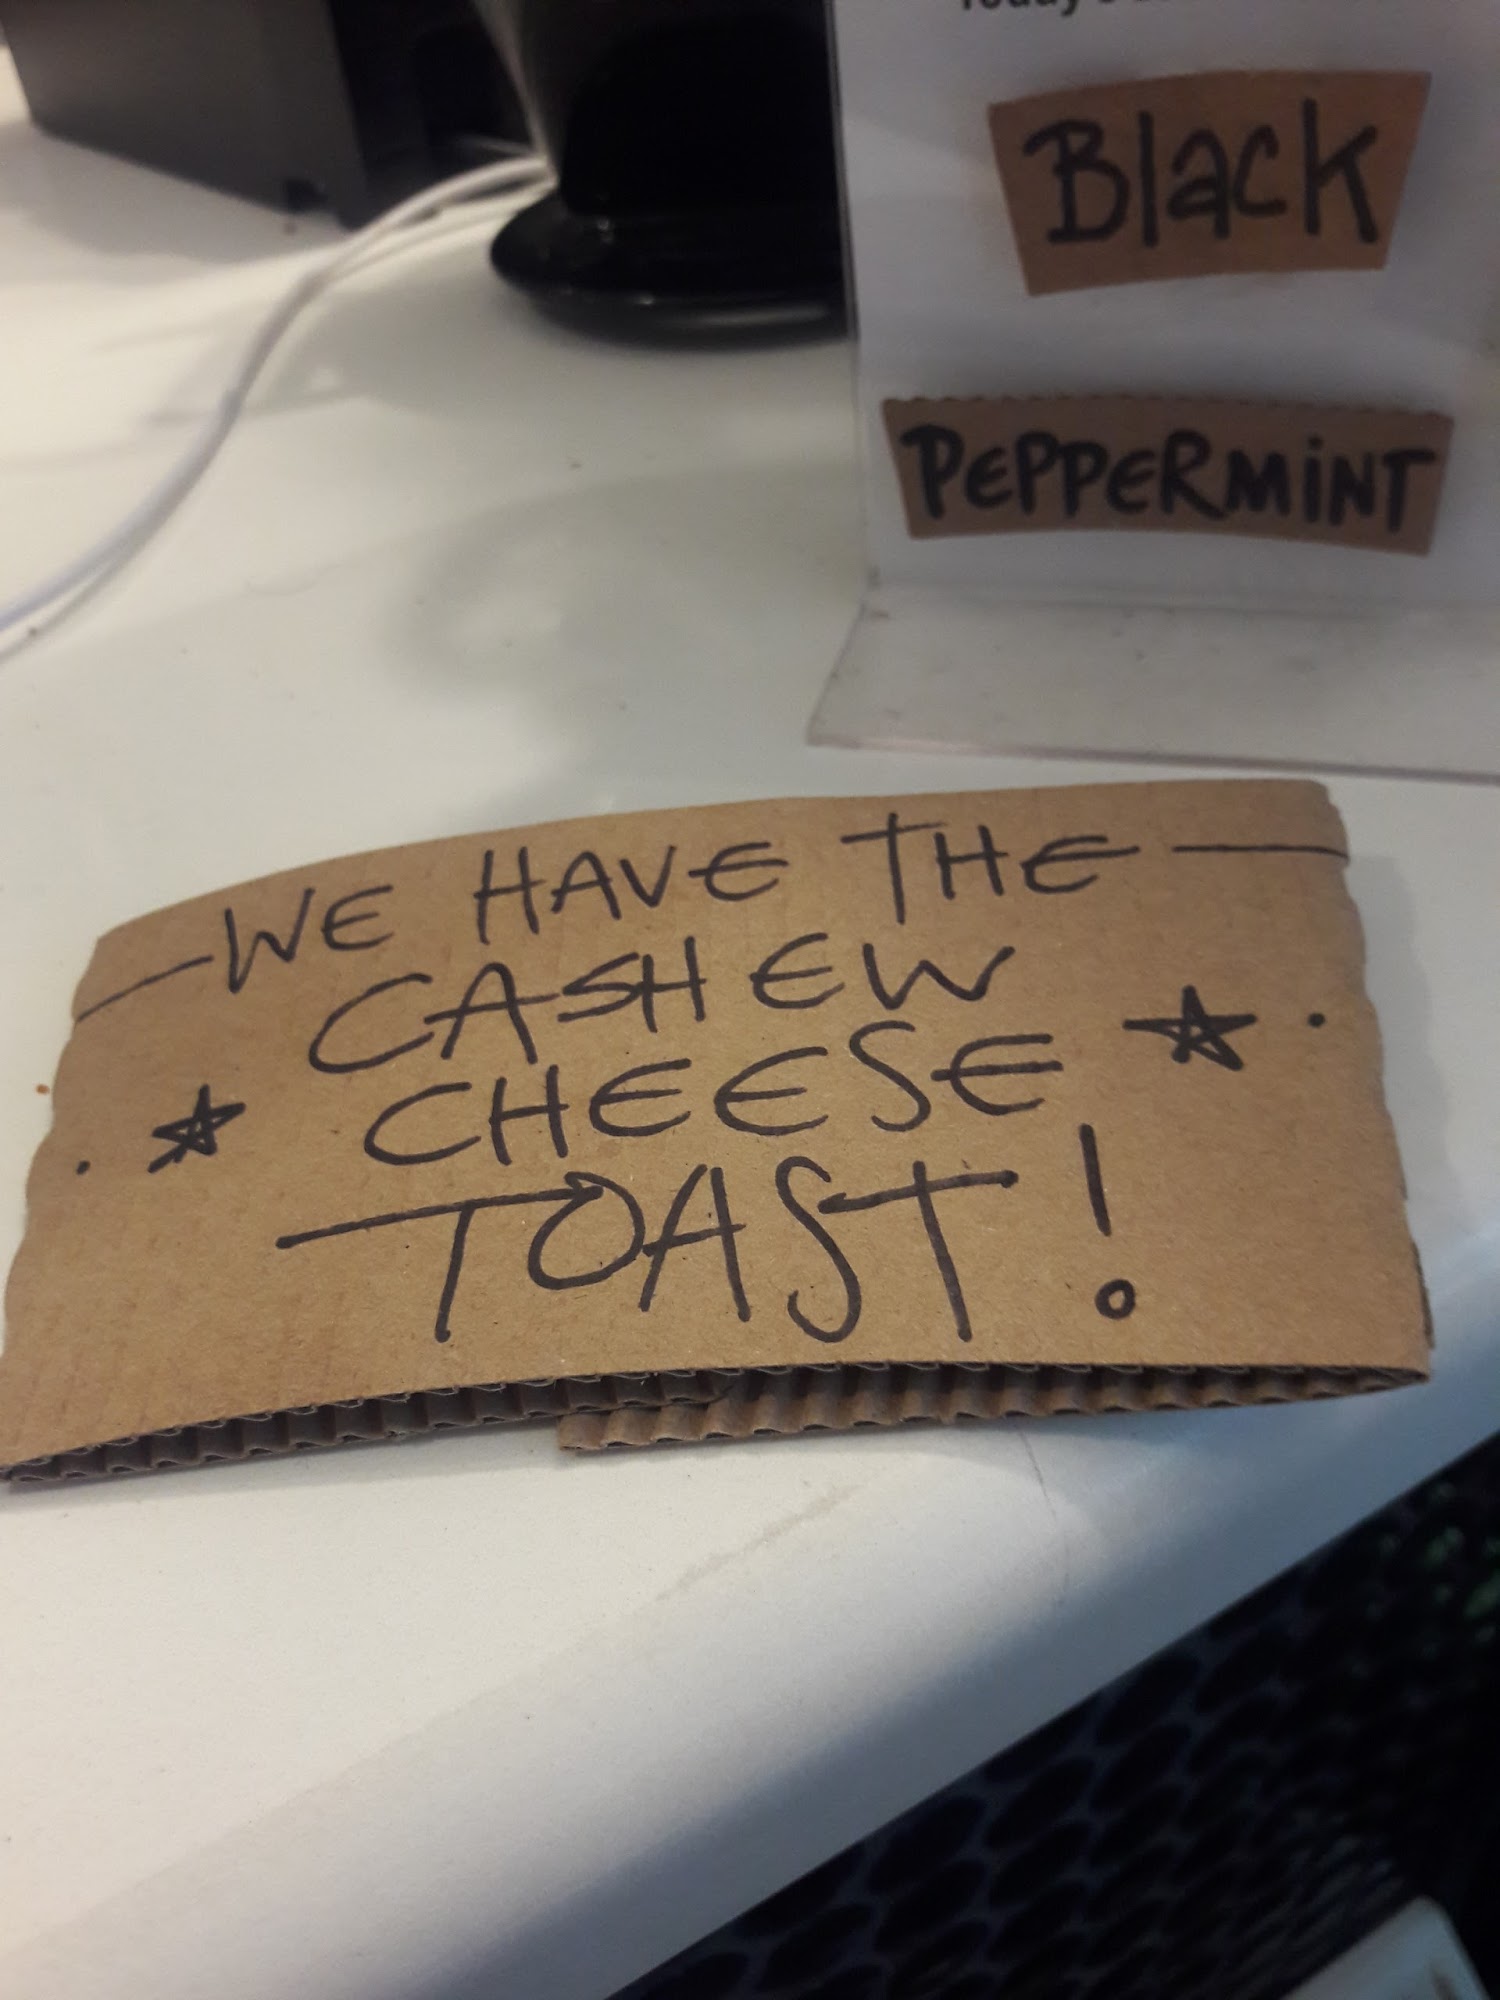 Today's
Black
PEPPERMINT
WE HAVE THE
CASHEW
CHEESE
TOAST!